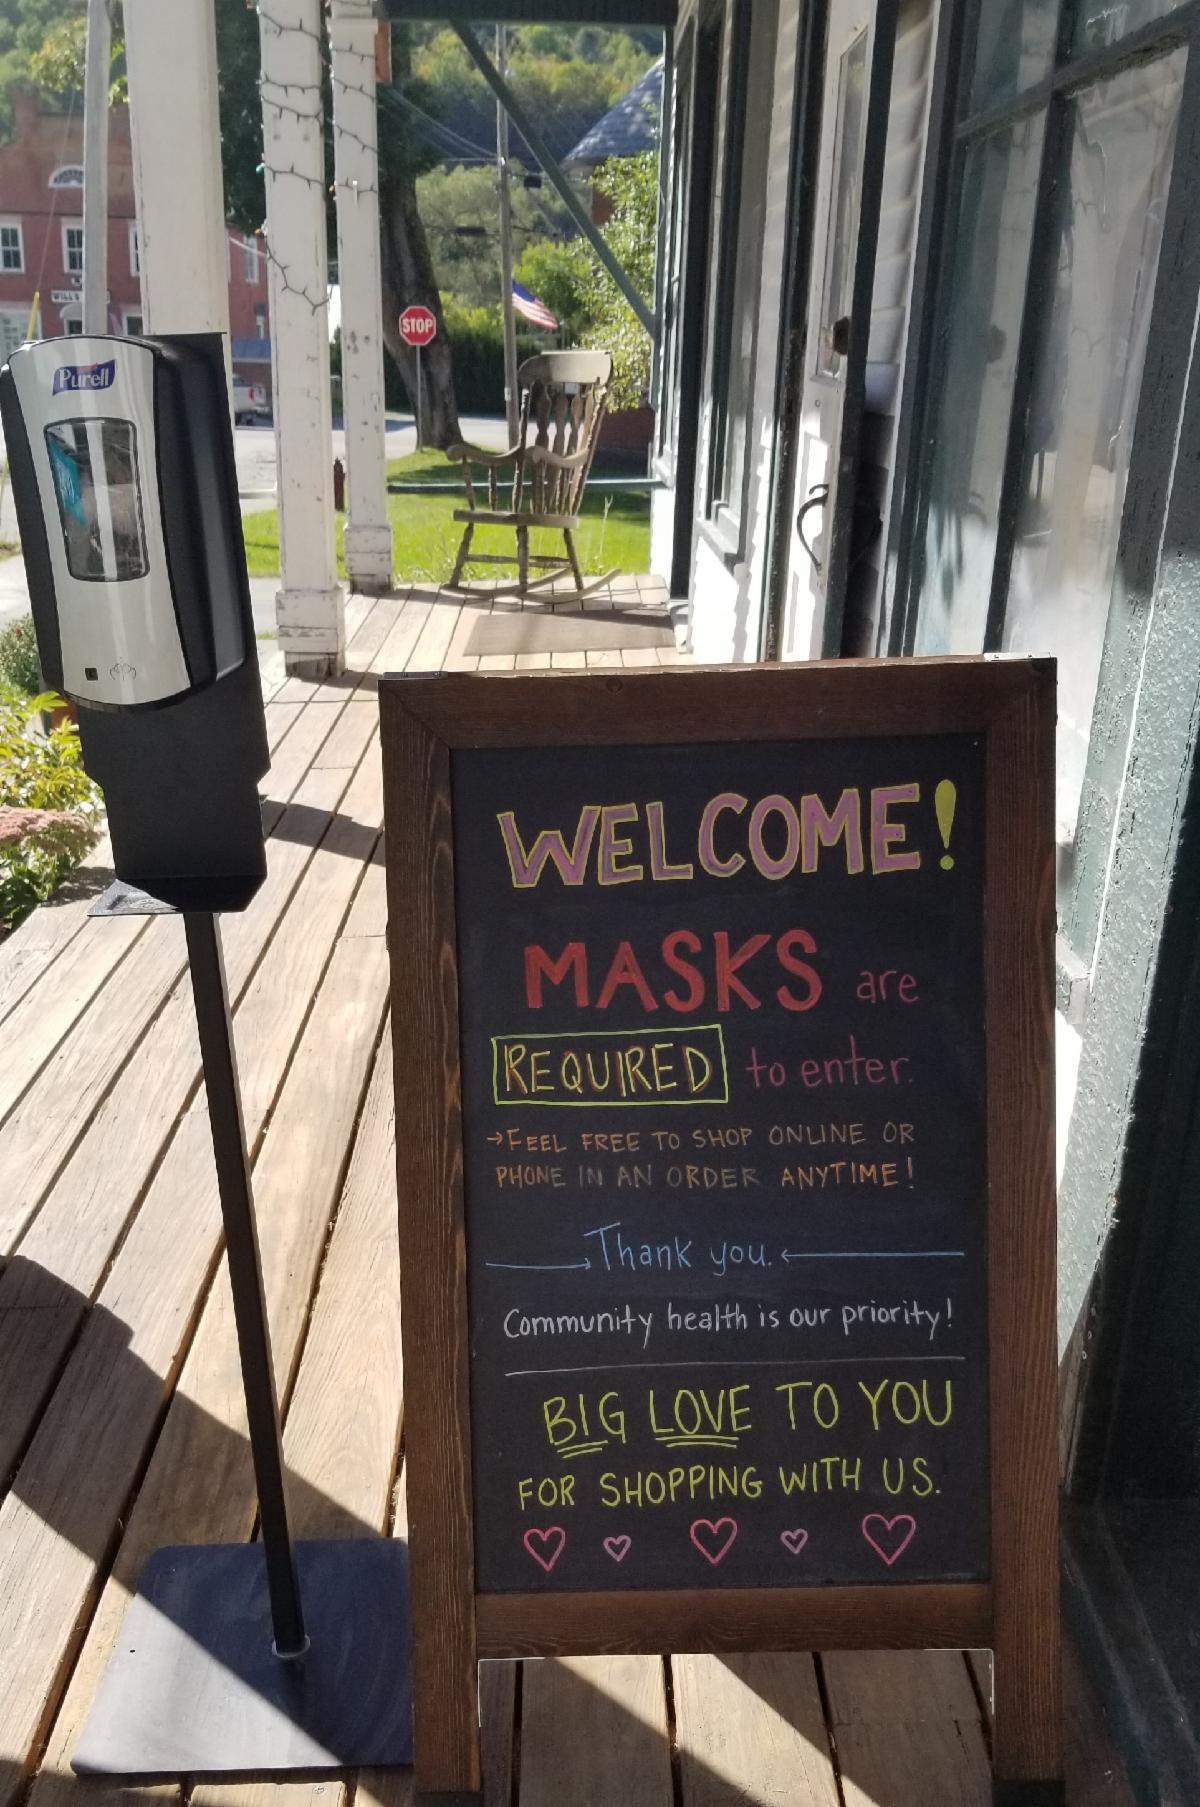 WILL'S
STOP
Purell
WELCOME!
MASKS are
REQUIRED to enter.
→FEEL FREE TO SHOP ONLINE OR
PHONE IN AN ORDER ANYTIME!
Thank you.
Community health is our priority!
BIG LOVE TO YOU
FOR SHOPPING WITH US.